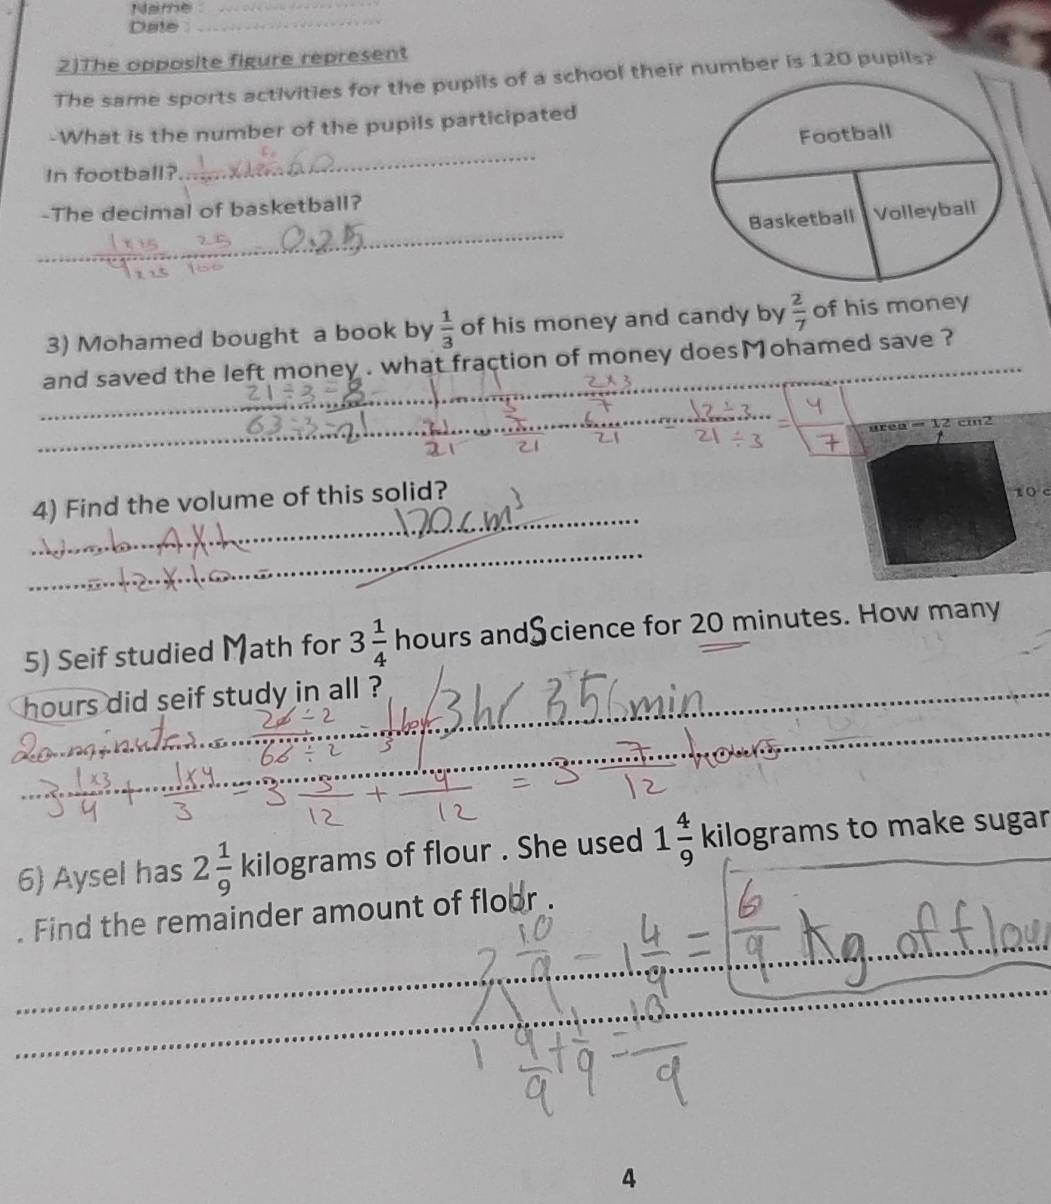 Name :
Date :
2)The opposite figure represent
The same sports activities for the pupils of a school their number is 120 pupils?
-What is the number of the pupils participated
In football?
60
-The decimal of basketball?
1x25 25 0.25
4x25 100
Football
Basketball Volleyball
3) Mohamed bought a book by 1/3 of his money and candy by 2/7 of his money
and saved the left money . what fraction of money does Mohamed save ?
21÷3=
63÷3=21
2x3
7
21 21 6/21 = 12÷3/21÷3 = 4/7
area = 12 cm2
10 c
4) Find the volume of this solid?
A x h 120 cm³
= 12 x 10 =
5) Seif studied Math for 3 1/4 hours and Science for 20 minutes. How many
hours did seif study in all ?
3 hr 35 min
20 minutes = ÷2/÷2 = 1/3 hour
3 1x3/4 + 1x4/3 = 3 3/12 + 4/12 = 3 7/12 hours
6) Aysel has 2 1/9 kilograms of flour . She used 1 4/9 kilograms to make sugar
. Find the remainder amount of flour .
2 10/9 - 1 4/9 = 6/9 kg of flou
1 9/9 + 1/9 = 10/9
4